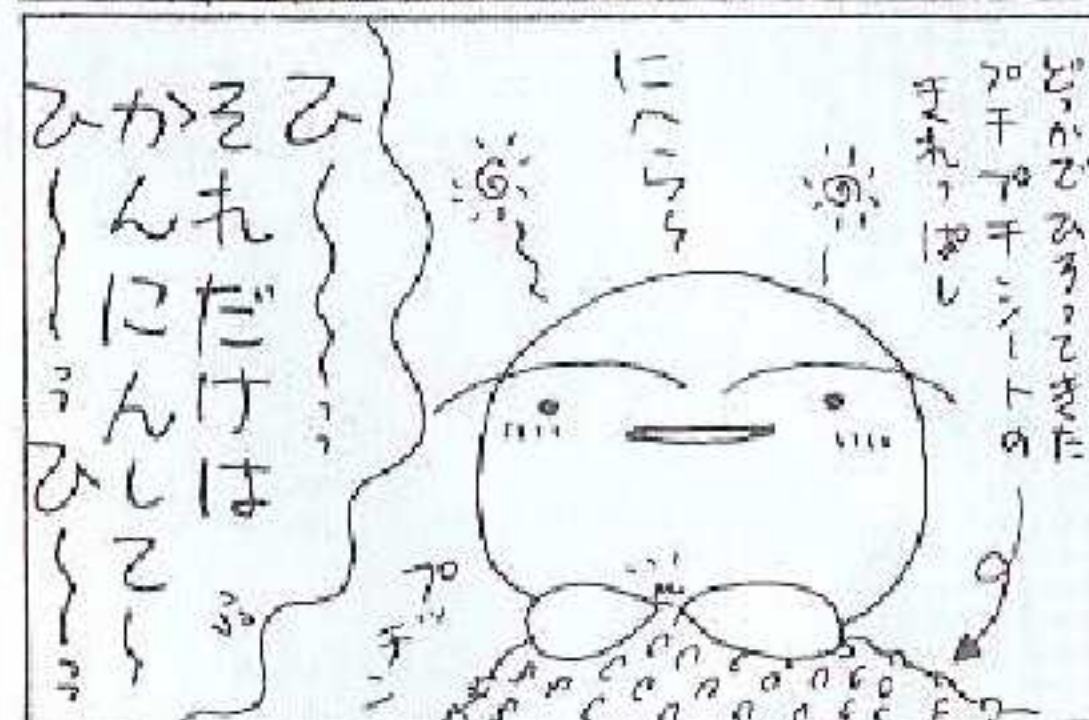 どっかでひろってきた
プチプチシートの
きれっぱし
にへらら
プチッ
ひ〜〜〜
それだけは
かんにんして〜
ひ〜〜〜ぅひ〜〜ぅ